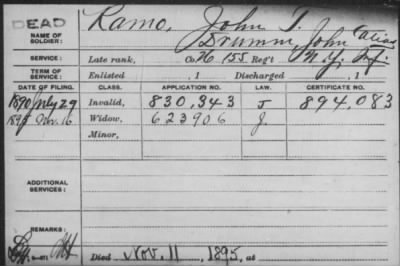 DEAD
NAME OF SOLDIER: Ramo, John T.
Drumm, John (alias
SERVICE: Late rank, Co. H 155 Reg't N.Y. Inf.
TERM OF SERVICE: Enlisted , 1 Discharged , 1
DATE OF FILING. CLASS. APPLICATION NO. LAW. CERTIFICATE NO.
1890 July 29 Invalid, 830,343 J 894,083
1895 Nov. 16 Widow, 623906 J.
Minor,
ADDITIONAL SERVICES:
REMARKS:
Died Nov. 11, 1895, at